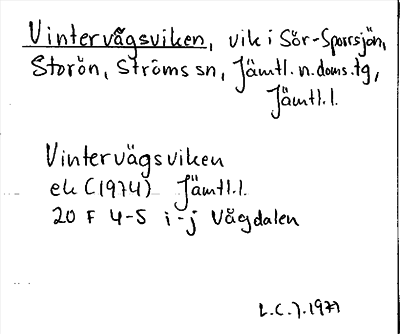 Vintervägsviken, vik i Sör-Sporrsjön,
Storön, Ströms sn, Jämtl. n. doms.tg,
Jämtl. l.
Vintervägsviken
ek (1974) Jämtl. l.
20 F 4-5 i-j Vågdalen
L.C.J. 1977